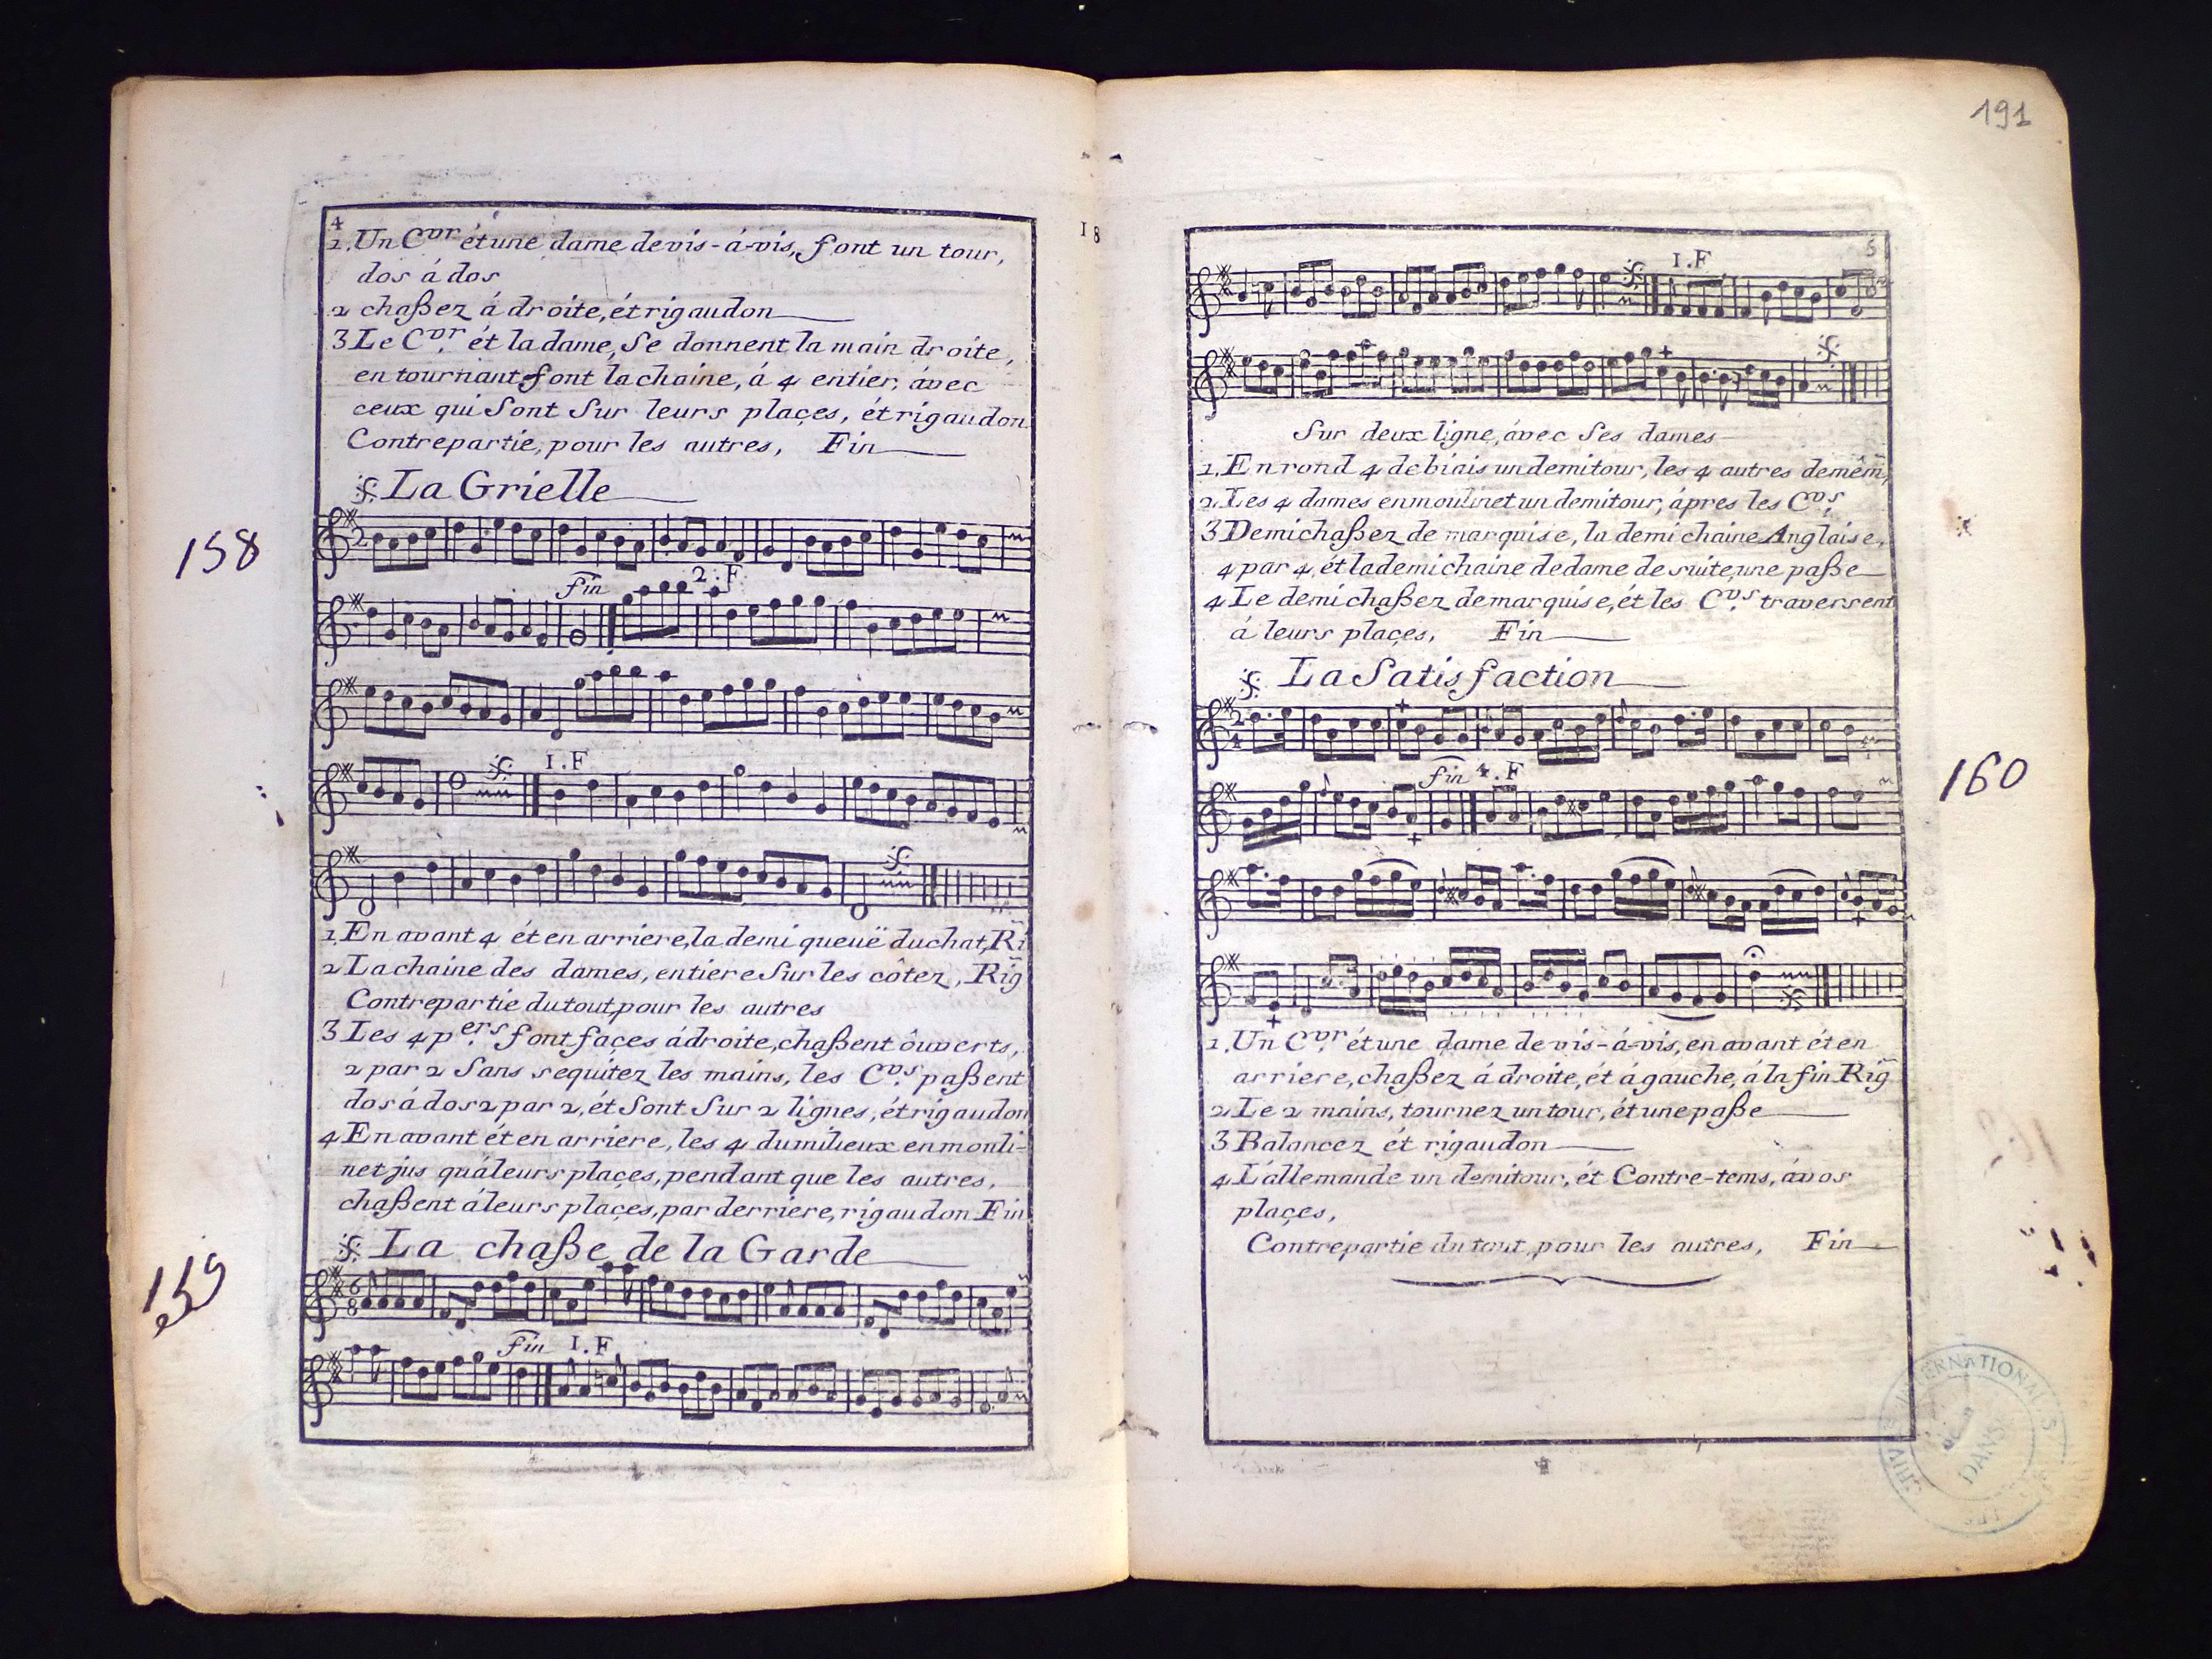 4
1. Un C.vr ét une dame de vis-á-vis, font un tour,
dos á dos
2 chaßez á droite, ét rigaudon
3 Le C.vr ét la dame, Se donnent la main droite,
en tournant font la chaine, á 4 entier, ávec
ceux qui Sont Sur leurs plaçes, ét rigaudon
Contrepartie, pour les autres, Fin
La Grielle
158
2
fin 2.F
1.F
1. En avant 4 ét en arriere, la demi queuë du chat, Ri
2 La chaine des dames, entiere Sur les côtez, Rig
Contrepartie du tout pour les autres
3 Les 4 p.ers font façes á droite, chaßent ôuverts,
2 par 2 Sans sequitez les mains, les C.vs paßent
dos á dos 2 par 2, ét Sont Sur 2 lignes, ét rigaudon
4 En avant ét en arriere, les 4 du milieux en mouli-
net jus qu'á leurs plaçes, pendant que les autres,
chaßent á leurs plaçes, par derriere, rigaudon Fin
La chaße de la Garde
159
6
8
Fin 1.F
18
191
5
1.F
Sur deux ligne, ávec Ses dames
1. En rond 4 de biais un demi tour, les 4 autres de mêm̃,
2. Les 4 dames en moulinet un demi tour, ápres les C.vs
3 Demi chaßez de marquise, la demi chaine Anglaise,
4 par 4, ét la demi chaine de dame de suite, une paße
4 Le demi chaßez de marquise, ét les C.vs traversent
á leurs plaçes, Fin
La Satisfaction
2
4
160
fin 4.F
1. Un C.vr ét une dame de vis-á-vis, en avant ét en
arriere, chaßez á droite, ét á gauche, á la fin Rig
2. Le 2 mains, tournez un tour, ét une paße
3 Balancez ét rigaudon
4 L'allemande un demi tour, ét Contre-tems, á vos
plaçes,
Contrepartie du tout, pour les autres, Fin
INTERNATIONALES
DANSE